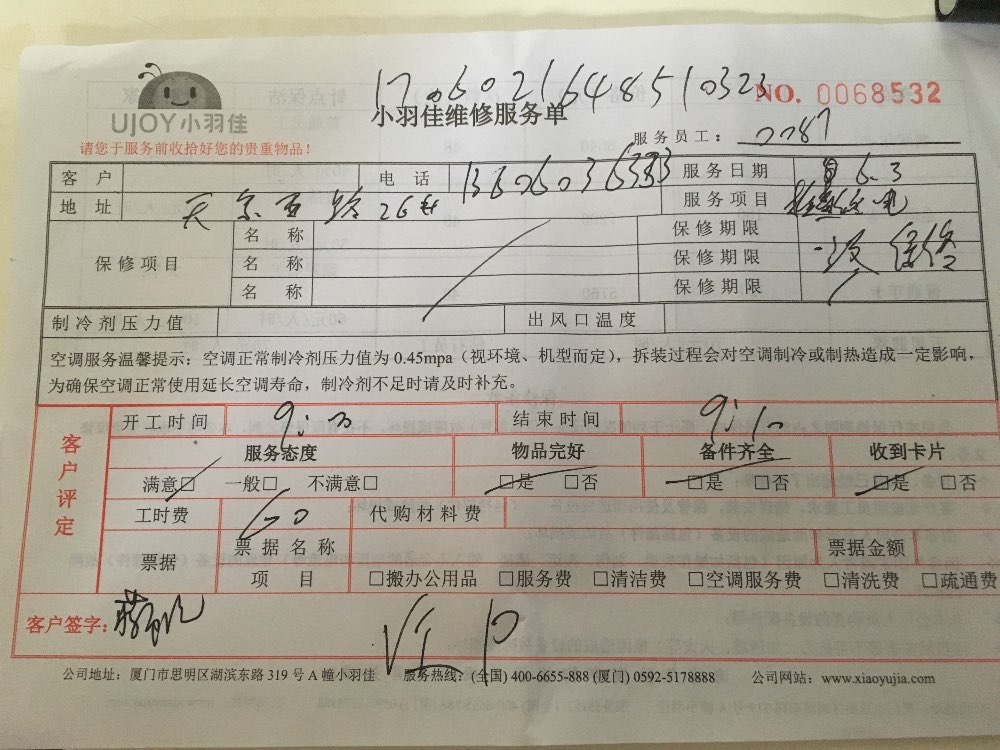 1706021648510323
UJOY小羽佳
小羽佳维修服务单
NO. 0068532
请您于服务前收拾好您的贵重物品！
服务员工：
客 户 电 话 服务日期 6.3
地 址 服务项目
保修项目
名 称 保修期限
名 称 保修期限 保修
名 称 保修期限
制冷剂压力值 出风口温度
空调服务温馨提示：空调正常制冷剂压力值为 0.45mpa（视环境、机型而定），拆装过程会对空调制冷或制热造成一定影响，
为确保空调正常使用延长空调寿命，制冷剂不足时请及时补充。
客户评定
开工时间 结束时间
服务态度 物品完好 备件齐全 收到卡片
满意□ 一般□ 不满意□ □是 □否 □是 □否 □是 □否
工时费 代购材料费
票据 票据名称 票据金额
项 目 □搬办公用品 □服务费 □清洁费 □空调服务费 □清洗费 □疏通费
客户签字：
公司地址：厦门市思明区湖滨东路 319 号 A 幢小羽佳 服务热线：(全国) 400-6655-888 (厦门) 0592-5178888 公司网站：www.xiaoyujia.com